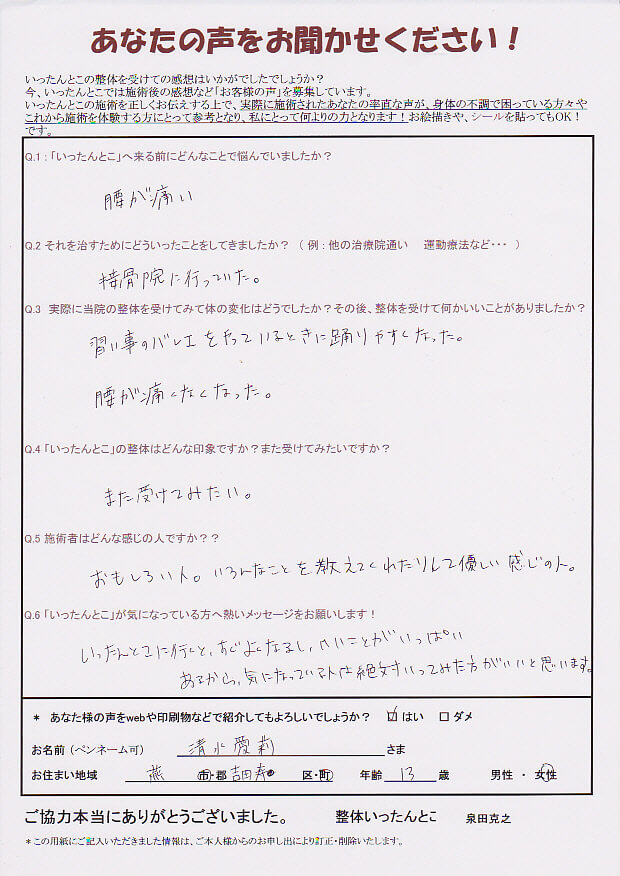 あなたの声をお聞かせください！
いったんとこの整体を受けての感想はいかがでしたでしょうか？
今、いったんとこでは施術後の感想など「お客様の声」を募集しています。
いったんとこの施術を正しくお伝えする上で、実際に施術されたあなたの率直な声が、身体の不調で困っている方々や
これから施術を体験する方にとって参考となり、私にとって何よりの力となります！お絵描きや、シールを貼ってもOK！
です。
Q.1：「いったんとこ」へ来る前にどんなことで悩んでいましたか？
腰が痛い
Q.2 それを治すためにどういったことをしてきましたか？ （ 例：他の治療院通い 運動療法など･･･ ）
接骨院に行っていた。
Q.3 実際に当院の整体を受けてみて体の変化はどうでしたか？その後、整体を受けて何かいいことがありましたか？
習い事のバレエをやっているときに踊りやすくなった。
腰が痛くなくなった。
Q.4 「いったんとこ」の整体はどんな印象ですか？また受けてみたいですか？
また受けてみたい。
Q.5 施術者はどんな感じの人ですか？？
おもしろい人。いろんなことを教えてくれたりして優しい感じの人。
Q.6 「いったんとこ」が気になっている方へ熱いメッセージをお願いします！
いったんとこに行くと、すぐよくなるし、いいことがいっぱい
あるから、気になっている人は絶対いってみた方がいいと思います。
* あなた様の声をwebや印刷物などで紹介してもよろしいでしょうか？ ☑ はい □ ダメ
お名前（ペンネーム可） 清水愛莉 さま
お住まい地域 燕 市・郡 吉田 区・町 年齢 13 歳 男性 ・ 女性
ご協力本当にありがとうございました。 整体いったんとこ 泉田克之
*この用紙にご記入いただきました情報は、ご本人様からのお申し出により訂正・削除いたします。